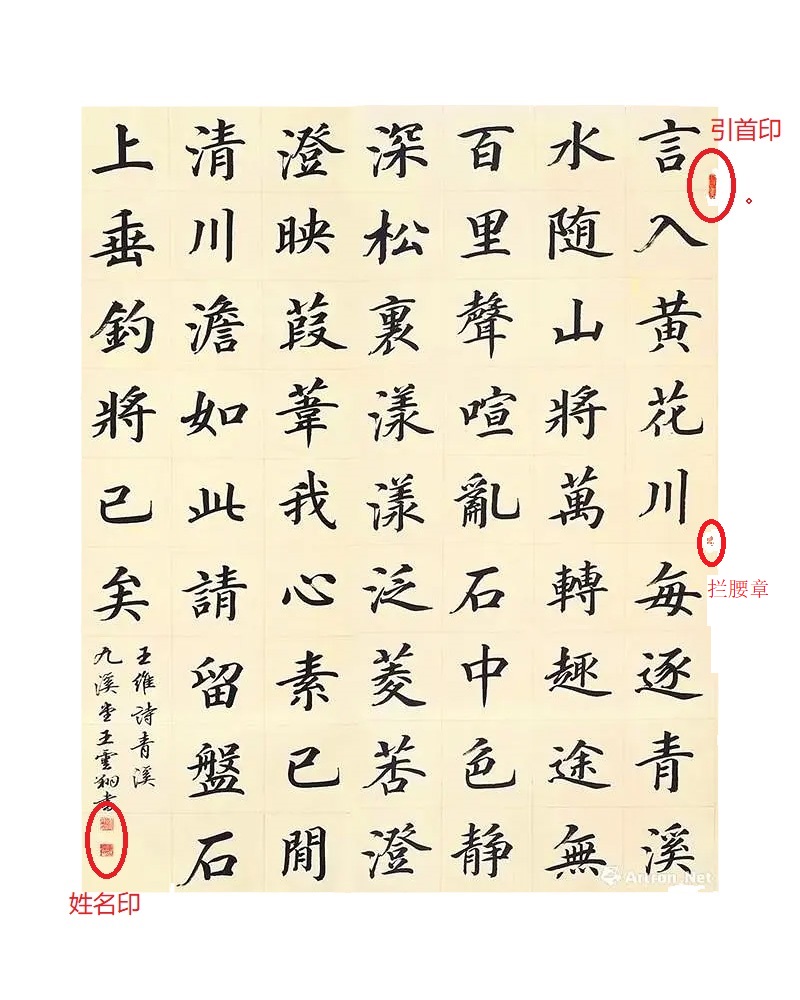 引首印
言入黄花川每逐青溪
水随山將萬轉趣途無
百里聲喧亂石中色静
深松裏漾漾泛菱莕澄
澄映葭葦我心素已閒
清川澹如此請留盤石
上垂釣將已矣
王維詩青溪
九溪堂王雲翔書
拦腰章
姓名印
Artron.Net